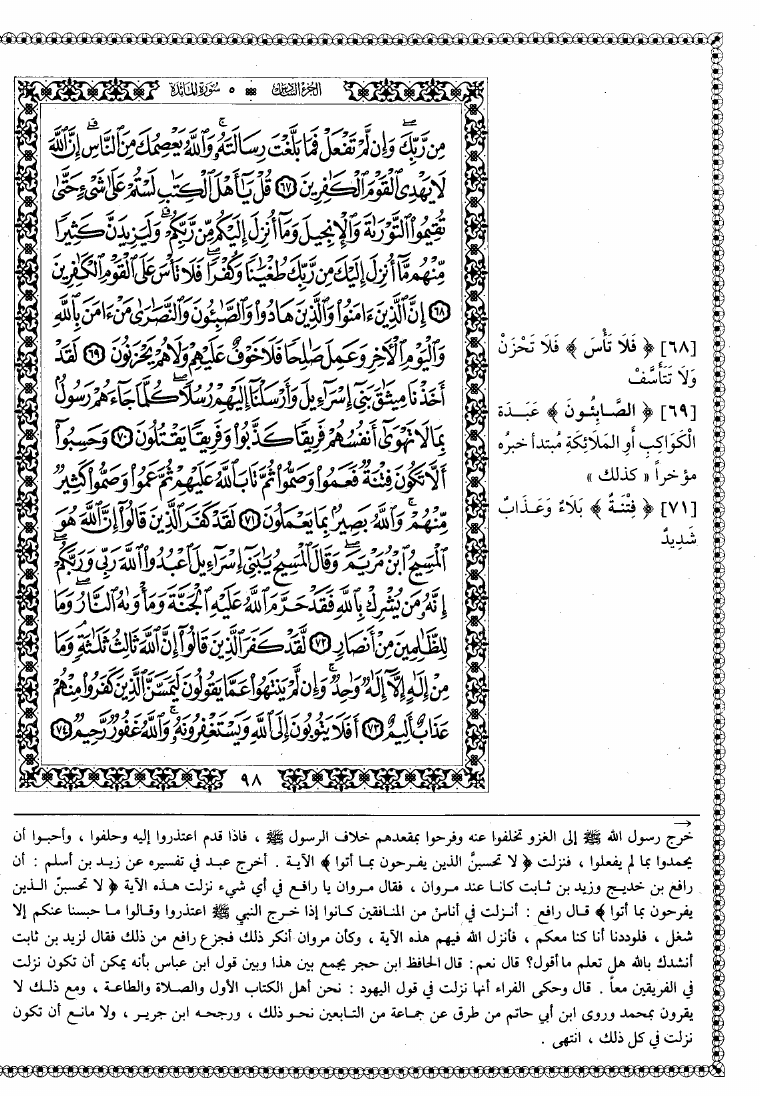 الجزء السادس ٥ سورة المائدة
مِن رَّبِّكَ ۖ وَإِن لَّمْ تَفْعَلْ فَمَا بَلَّغْتَ رِسَالَتَهُۥ ۚ وَٱللَّهُ يَعْصِمُكَ مِنَ ٱلنَّاسِ ۗ إِنَّ ٱللَّهَ
لَا يَهْدِى ٱلْقَوْمَ ٱلْكَٰفِرِينَ ﴿٦٧﴾ قُلْ يَٰٓأَهْلَ ٱلْكِتَٰبِ لَسْتُمْ عَلَىٰ شَىْءٍ حَتَّىٰ
تُقِيمُوا۟ ٱلتَّوْرَىٰةَ وَٱلْإِنجِيلَ وَمَآ أُنزِلَ إِلَيْكُم مِّن رَّبِّكُمْ ۗ وَلَيَزِيدَنَّ كَثِيرًا
مِّنْهُم مَّآ أُنزِلَ إِلَيْكَ مِن رَّبِّكَ طُغْيَٰنًا وَكُفْرًا ۖ فَلَا تَأْسَ عَلَى ٱلْقَوْمِ ٱلْكَٰفِرِينَ
﴿٦٨﴾ إِنَّ ٱلَّذِينَ ءَامَنُوا۟ وَٱلَّذِينَ هَادُوا۟ وَٱلصَّٰبِـُٔونَ وَٱلنَّصَٰرَىٰ مَنْ ءَامَنَ بِٱللَّهِ
وَٱلْيَوْمِ ٱلْءَاخِرِ وَعَمِلَ صَٰلِحًا فَلَا خَوْفٌ عَلَيْهِمْ وَلَا هُمْ يَحْزَنُونَ ﴿٦٩﴾ لَقَدْ
أَخَذْنَا مِيثَٰقَ بَنِىٓ إِسْرَٰٓءِيلَ وَأَرْسَلْنَآ إِلَيْهِمْ رُسُلًا ۖ كُلَّمَا جَآءَهُمْ رَسُولٌۢ
بِمَا لَا تَهْوَىٰٓ أَنفُسُهُمْ فَرِيقًا كَذَّبُوا۟ وَفَرِيقًا يَقْتُلُونَ ﴿٧٠﴾ وَحَسِبُوٓا۟
أَلَّا تَكُونَ فِتْنَةٌ فَعَمُوا۟ وَصَمُّوا۟ ثُمَّ تَابَ ٱللَّهُ عَلَيْهِمْ ثُمَّ عَمُوا۟ وَصَمُّوا۟ كَثِيرٌ
مِّنْهُمْ ۚ وَٱللَّهُ بَصِيرٌۢ بِمَا يَعْمَلُونَ ﴿٧١﴾ لَقَدْ كَفَرَ ٱلَّذِينَ قَالُوٓا۟ إِنَّ ٱللَّهَ هُوَ
ٱلْمَسِيحُ ٱبْنُ مَرْيَمَ ۖ وَقَالَ ٱلْمَسِيحُ يَٰبَنِىٓ إِسْرَٰٓءِيلَ ٱعْبُدُوا۟ ٱللَّهَ رَبِّى وَرَبَّكُمْ ۖ
إِنَّهُۥ مَن يُشْرِكْ بِٱللَّهِ فَقَدْ حَرَّمَ ٱللَّهُ عَلَيْهِ ٱلْجَنَّةَ وَمَأْوَىٰهُ ٱلنَّارُ ۖ وَمَا
لِلظَّٰلِمِينَ مِنْ أَنصَارٍ ﴿٧٢﴾ لَّقَدْ كَفَرَ ٱلَّذِينَ قَالُوٓا۟ إِنَّ ٱللَّهَ ثَالِثُ ثَلَٰثَةٍ ۘ وَمَا
مِنْ إِلَٰهٍ إِلَّآ إِلَٰهٌ وَٰحِدٌ ۚ وَإِن لَّمْ يَنتَهُوا۟ عَمَّا يَقُولُونَ لَيَمَسَّنَّ ٱلَّذِينَ كَفَرُوا۟ مِنْهُمْ
عَذَابٌ أَلِيمٌ ﴿٧٣﴾ أَفَلَا يَتُوبُونَ إِلَى ٱللَّهِ وَيَسْتَغْفِرُونَهُۥ ۚ وَٱللَّهُ غَفُورٌ رَّحِيمٌ ﴿٧٤﴾
٩٨
[٦٨] ﴿ فَلَا تَأْسَ ﴾ فَلَا تَحْزَنْ
وَلَا تَتَأَسَّفْ
[٦٩] ﴿ الصَّابِئُونَ ﴾ عَبَدَةُ
الْكَوَاكِبِ أَوِ المَلَائِكَةِ مُبتدأ خبرُه
مؤخراً « كذلك »
[٧١] ﴿ فِتْنَةٌ ﴾ بَلَاءٌ وَعَذَابٌ
شَدِيدٌ
خرج رسول الله ﷺ إلى الغزو تخلفوا عنه وفرحوا بمقعدهم خلاف الرسول ﷺ ، فاذا قدم اعتذروا إليه وحلفوا ، وأحبوا أن
يحمدوا بما لم يفعلوا ، فنزلت ﴿ لا تحسبنَّ الذين يفرحون بما أتوا ﴾ الآية . أخرج عبد في تفسيره عن زيد بن أسلم : أن
رافع بن خديج وزيد بن ثابت كانا عند مروان ، فقال مروان يا رافع في أي شيء نزلت هذه الآية ﴿ لا تحسبنّ الذين
يفرحون بما أتوا ﴾ قال رافع : أنزلت في أناسٌ من المنافقين كانوا إذا خرج النبي ﷺ اعتذروا وقالوا ما حبسنا عنكم إلا
شغل ، فلوددنا أنا كنا معكم ، فأنزل الله فيهم هذه الآية ، وكأن مروان أنكر ذلك فجزع رافع من ذلك فقال لزيد بن ثابت
أنشدك بالله هل تعلم ما أقول؟ قال نعم: قال الحافظ ابن حجر يجمع بين هذا وبين قول ابن عباس بأنه يمكن أن تكون نزلت
في الفريقين معاً . قال وحكى الفراء أنها نزلت في قول اليهود : نحن أهل الكتاب الأول والصلاة والطاعة ، ومع ذلك لا
يقرون بمحمد وروى ابن أبي حاتم من طرق عن جماعة من التابعين نحو ذلك ، ورجحه ابن جرير ، ولا مانع أن تكون
نزلت في كل ذلك ، انتهى .